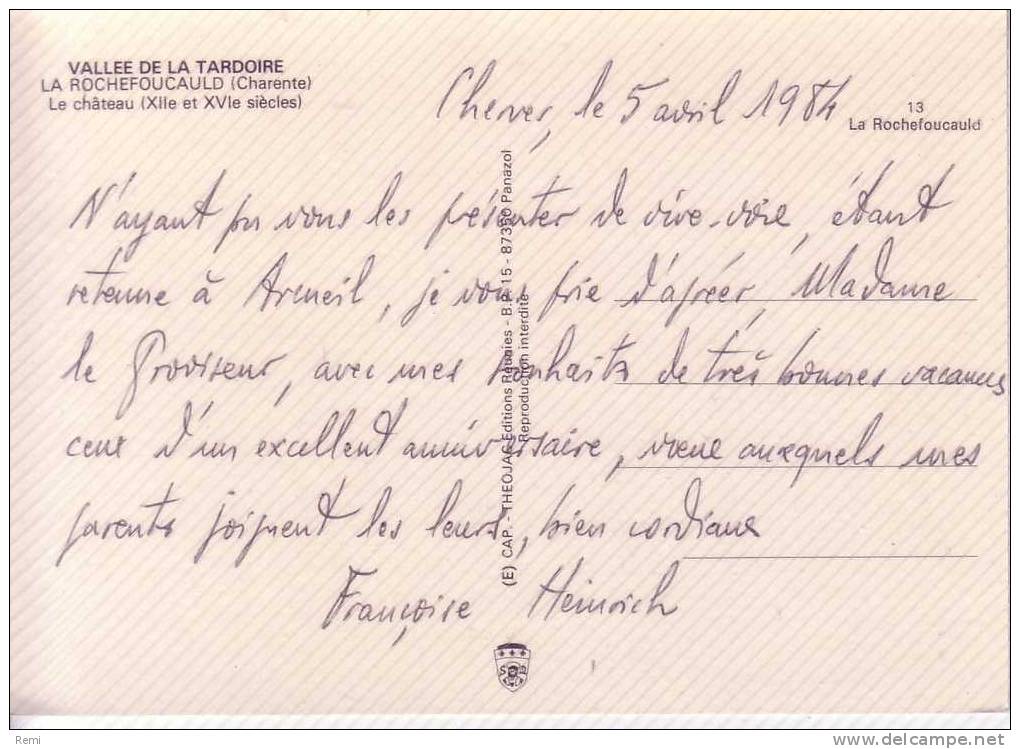 VALLEE DE LA TARDOIRE
LA ROCHEFOUCAULD (Charente)
Le château (XIIe et XVIe siècles)
13
La Rochefoucauld
Cherves, le 5 avril 1984
N'ayant pu vous les présenter de vive-voix, étant
retenue à Arcueil, je vous prie d'agréer, Madame
le Proviseur, avec mes souhaits de très bonnes vacances
ceux d'un excellent anniversaire, vœux auxquels mes
parents joignent les leurs, bien cordiaux
Françoise Heinrich
(E) CAP. - THEOJAC Editions Réunies - B.P. 15 - 87350 Panazol
Reproduction interdite
Remi
www.delcampe.net